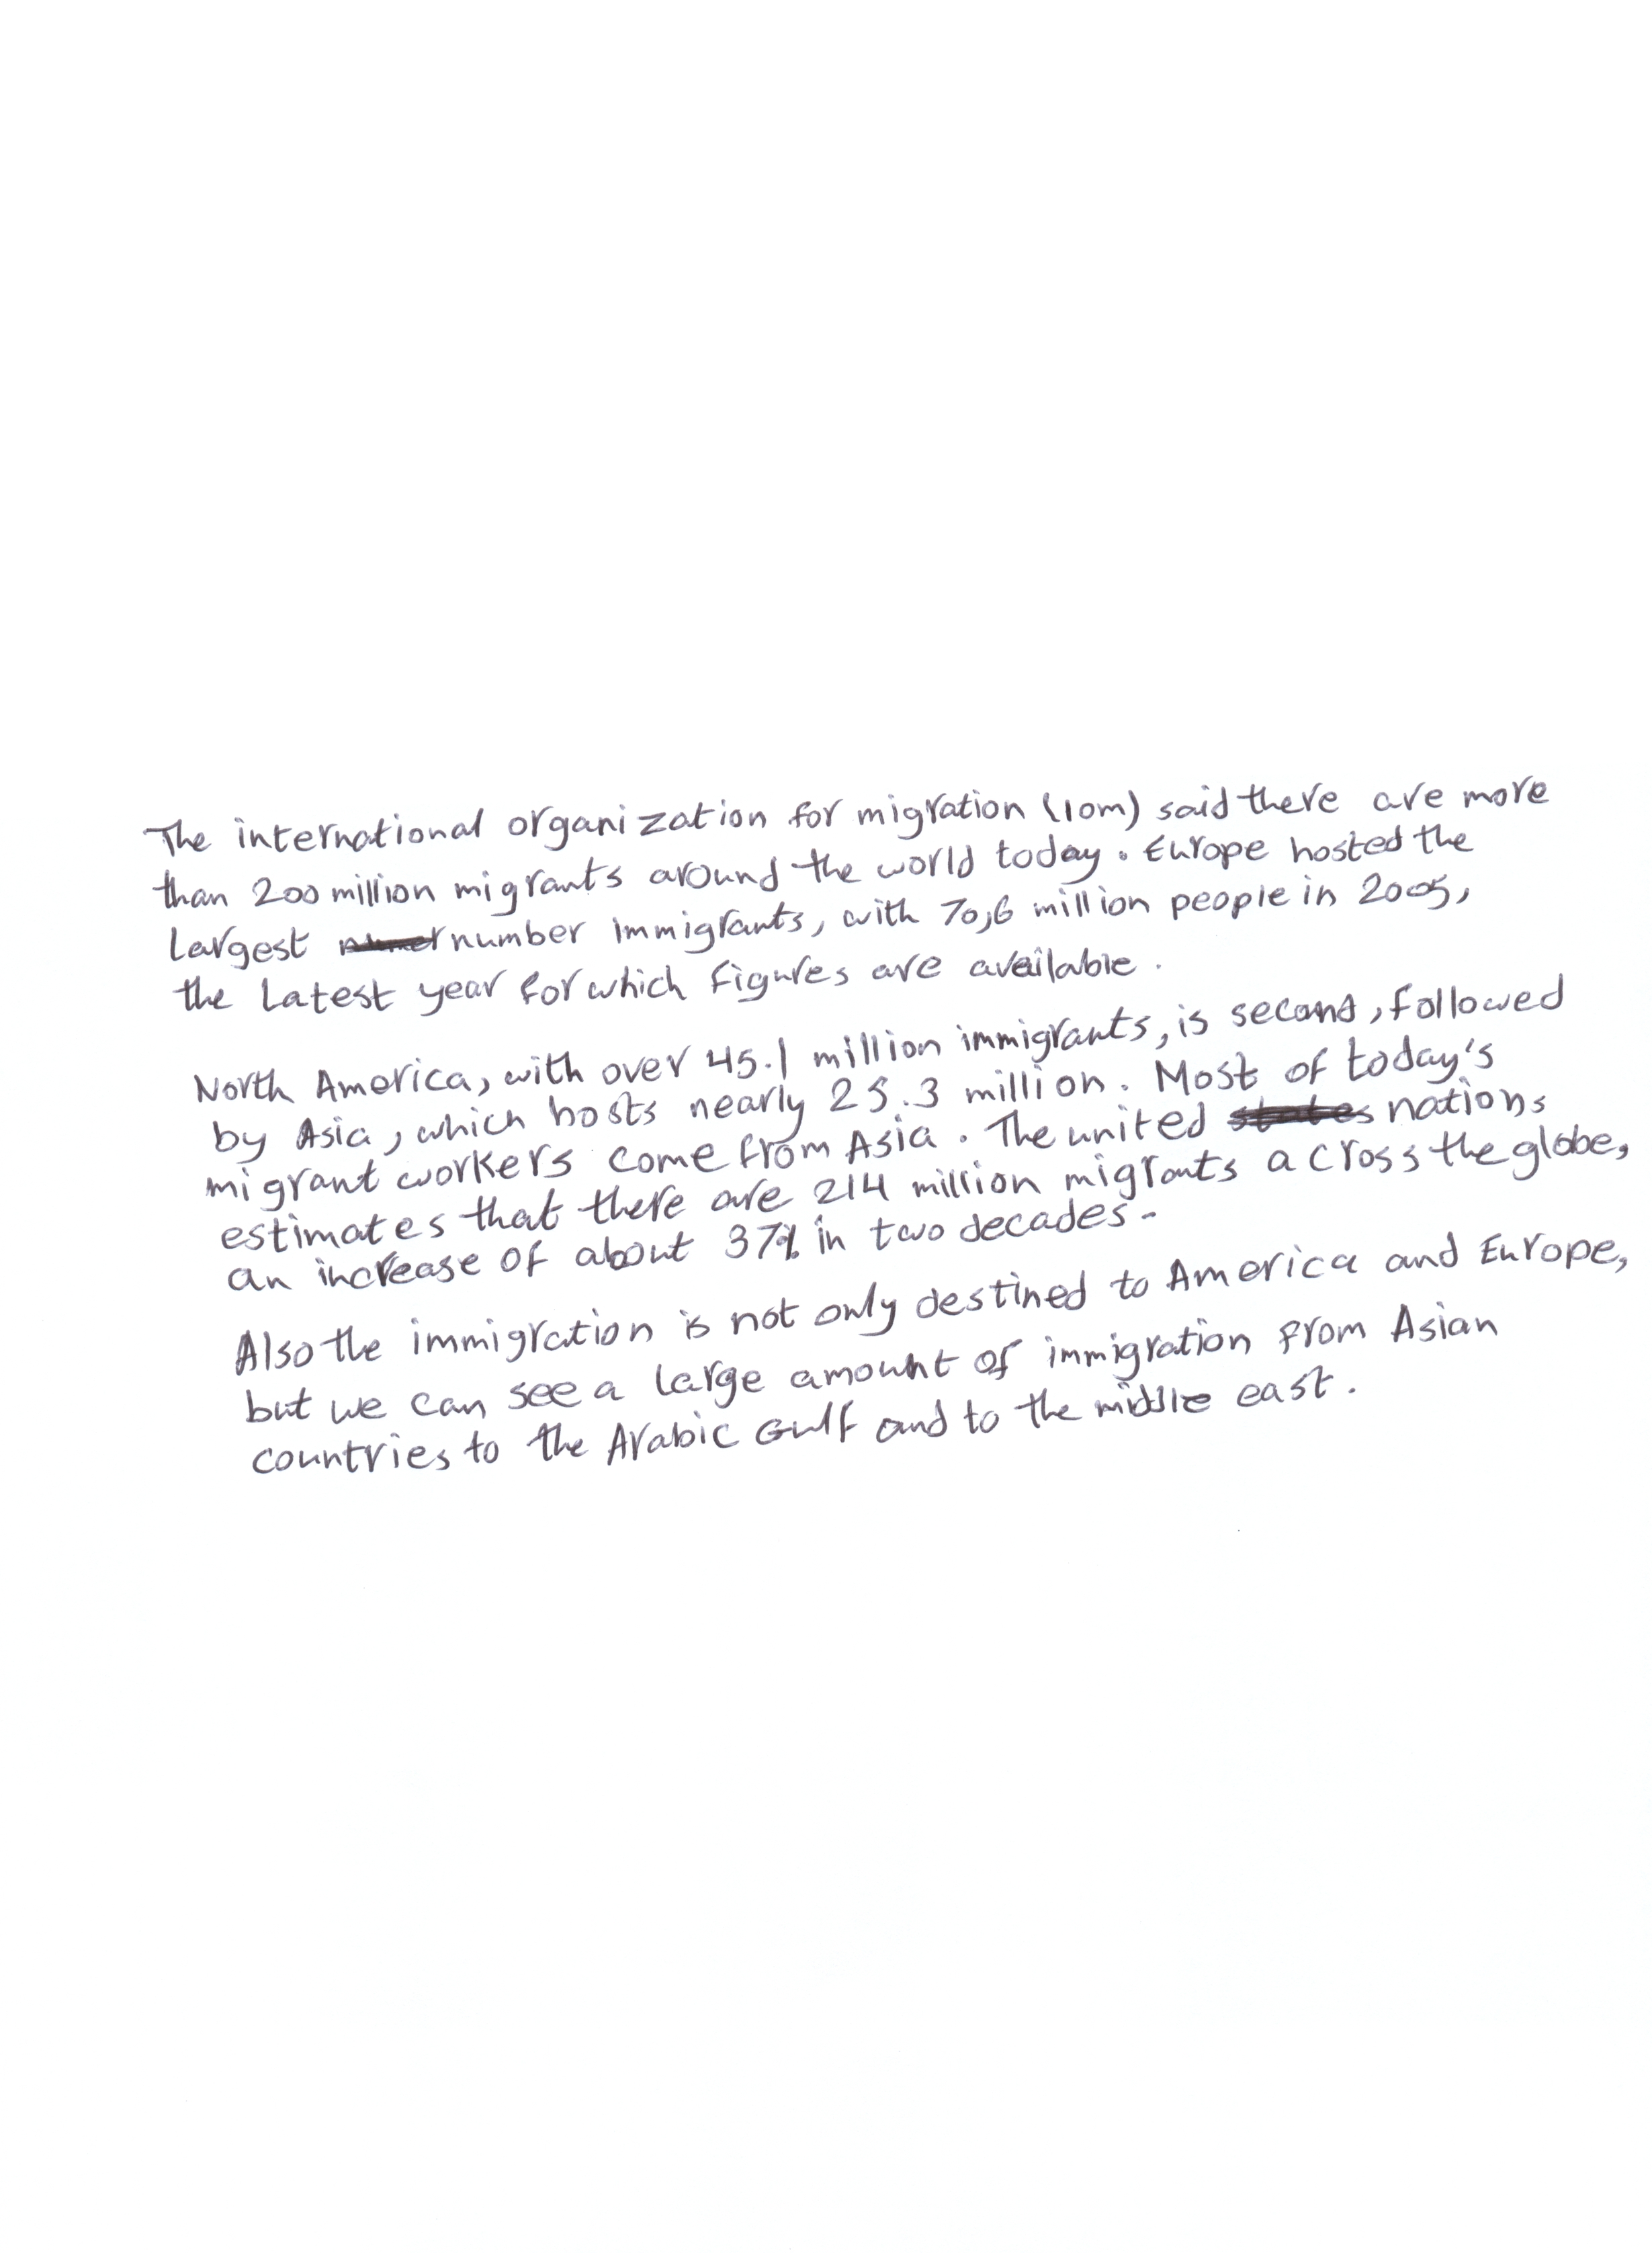 The international organization for migration (iom) said there are more
than 200 million migrants around the world today. Europe hosted the
largest number immigrants, with 70,6 million people in 2005,
the latest year for which figures are available.
North America, with over 45.1 million immigrants, is second, followed
by Asia, which hosts nearly 25.3 million. Most of today's
migrant workers come from Asia. The united states nations
estimates that there are 214 million migrants across the globe,
an increase of about 37% in two decades.
Also the immigration is not only destined to America and Europe,
but we can see a large amount of immigration from Asian
countries to the Arabic Gulf and to the middle east.